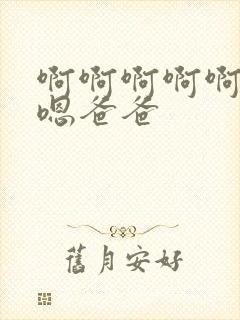 啊啊啊啊啊
嗯爸爸
舊月安好